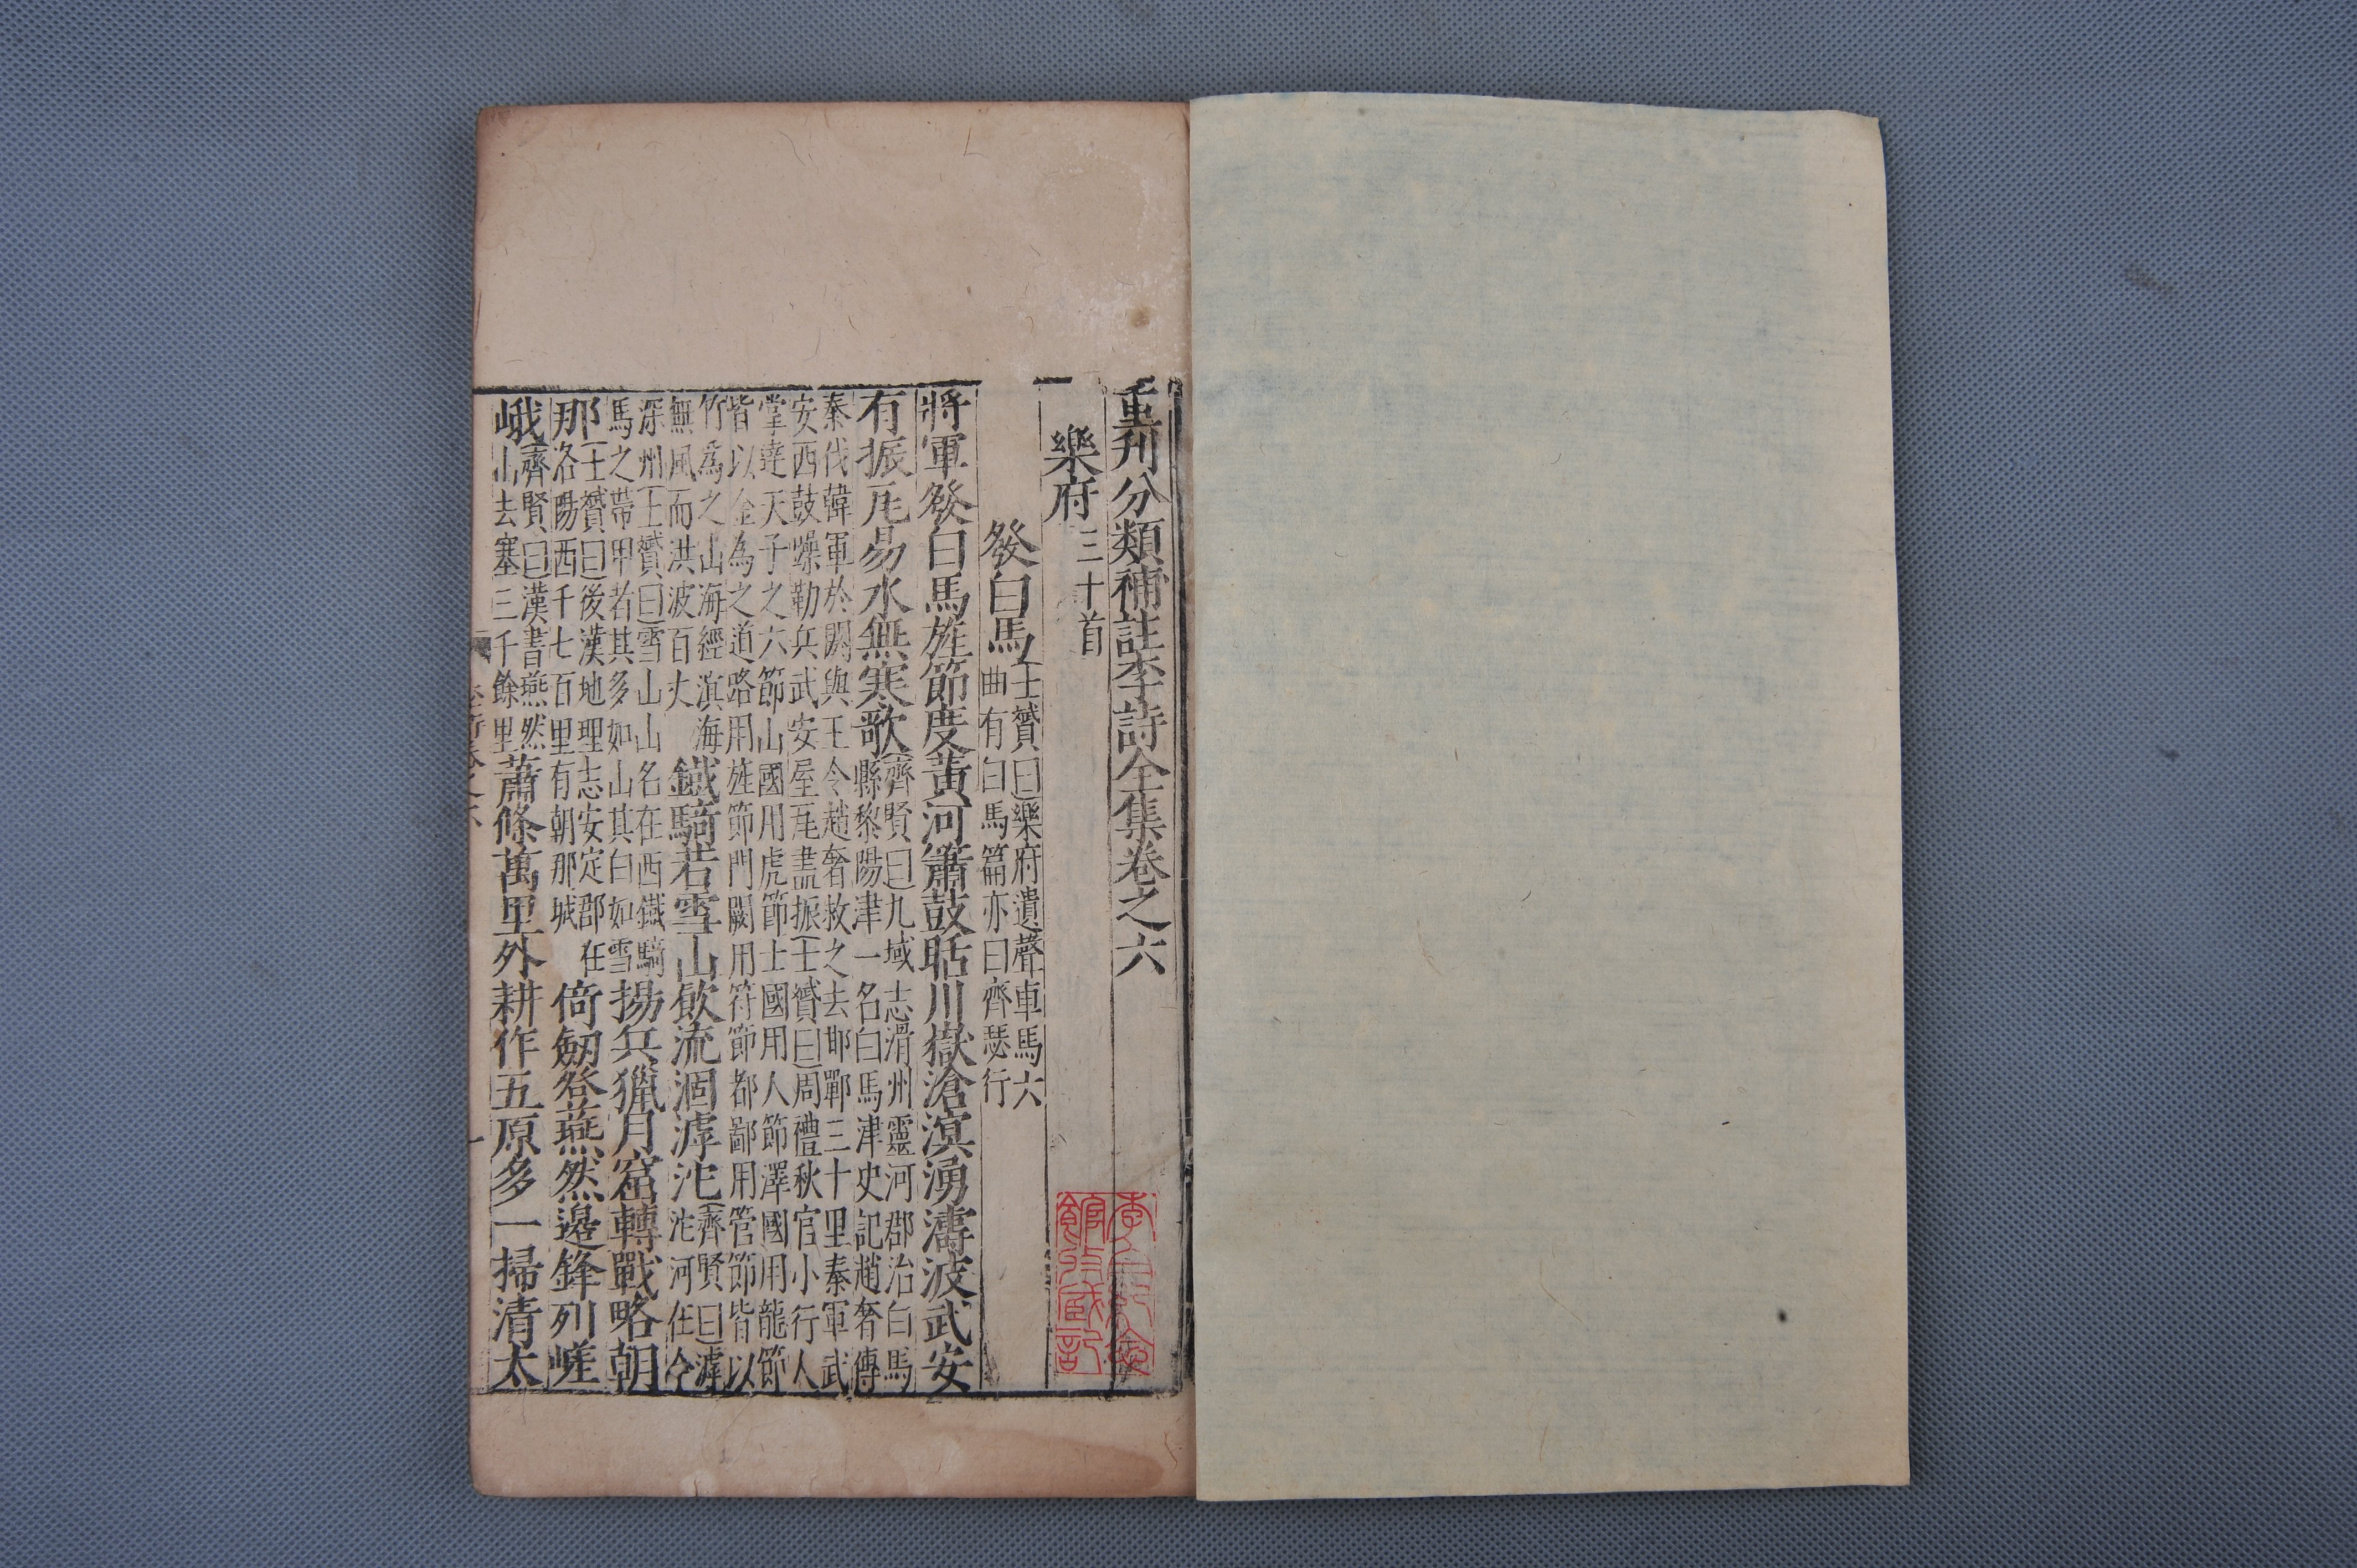 重刊分類補註李詩全集卷之六
樂府三十首
發白馬士贇曰樂府遺聲車馬六
曲有白馬篇亦曰齊瑟行
將軍發白馬旌節度黃河簫鼓聒川嶽滄溟湧濤波武安
有振瓦易水無寒歌齊賢曰九域志滑州靈河郡治白馬
縣黎陽津一名白馬津史記趙奢傳
秦伐韓軍於閼與王令趙奢救之去邯鄲三十里秦軍武
安西鼓譟勒兵武安屋瓦盡振士贇曰周禮秋官小行人
掌達天子之六節山國用虎節士國用人節澤國用龍節
皆以金為之道路用旌節門關用符節都鄙用管節皆以
竹爲之山海經滇海
無風而洪波百丈
鐵騎若雪山飲流涸滹沱齊賢曰滹
沱河在今
深州士贇曰雪山山名在西鐵騎
馬之帶甲者其多如山其白如雪
揚兵獵月窟轉戰略朝
那士贇曰後漢地理志安定郡在
洛陽西千七百里有朝那城
倚劒登燕然邊鋒列嵯
峨齊賢曰漢書燕然
山去塞三千餘里
蕭條萬里外耕作五原多一掃清太
李白紀念
館收藏記